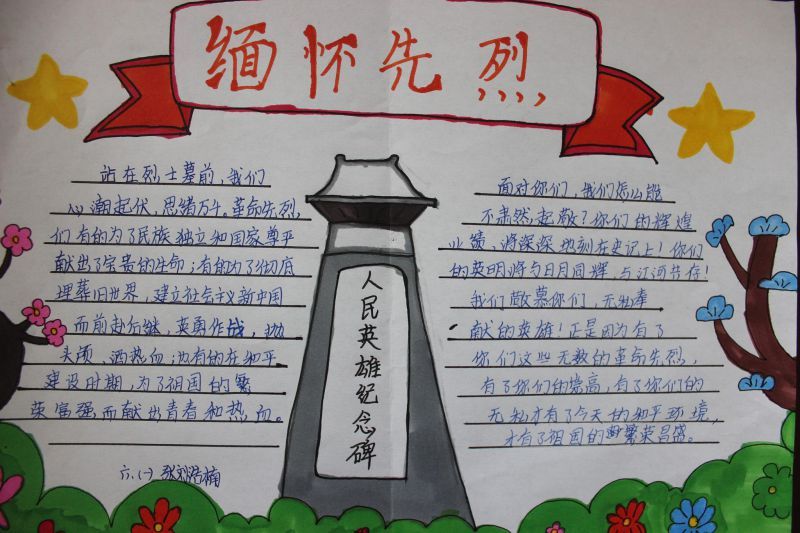 缅怀先烈
站在烈士墓前,我们
心潮起伏,思绪万千。革命先烈,
们有的为了民族独立和国家尊严
献出了宝贵的生命;有的为了彻底
埋葬旧世界,建立社会主义新中国
而前赴后继,英勇作战,抛
头颅、洒热血;也有的在和平
建设时期,为了祖国的繁
荣富强而献出青春和热血。
六.(一)
人民英雄纪念碑
面对你们,我们怎么能
不肃然起敬?你们的辉煌
业绩,将深深地刻在史记上!你们
的英明将与日月同辉,与江河共存!
我们敬慕你们,无私奉
献的英雄!正是因为有了
你们这些无数的革命先烈,
有了你们的崇高,有了你们的
无私才有了今天的和平环境,
才有了祖国的繁荣昌盛。